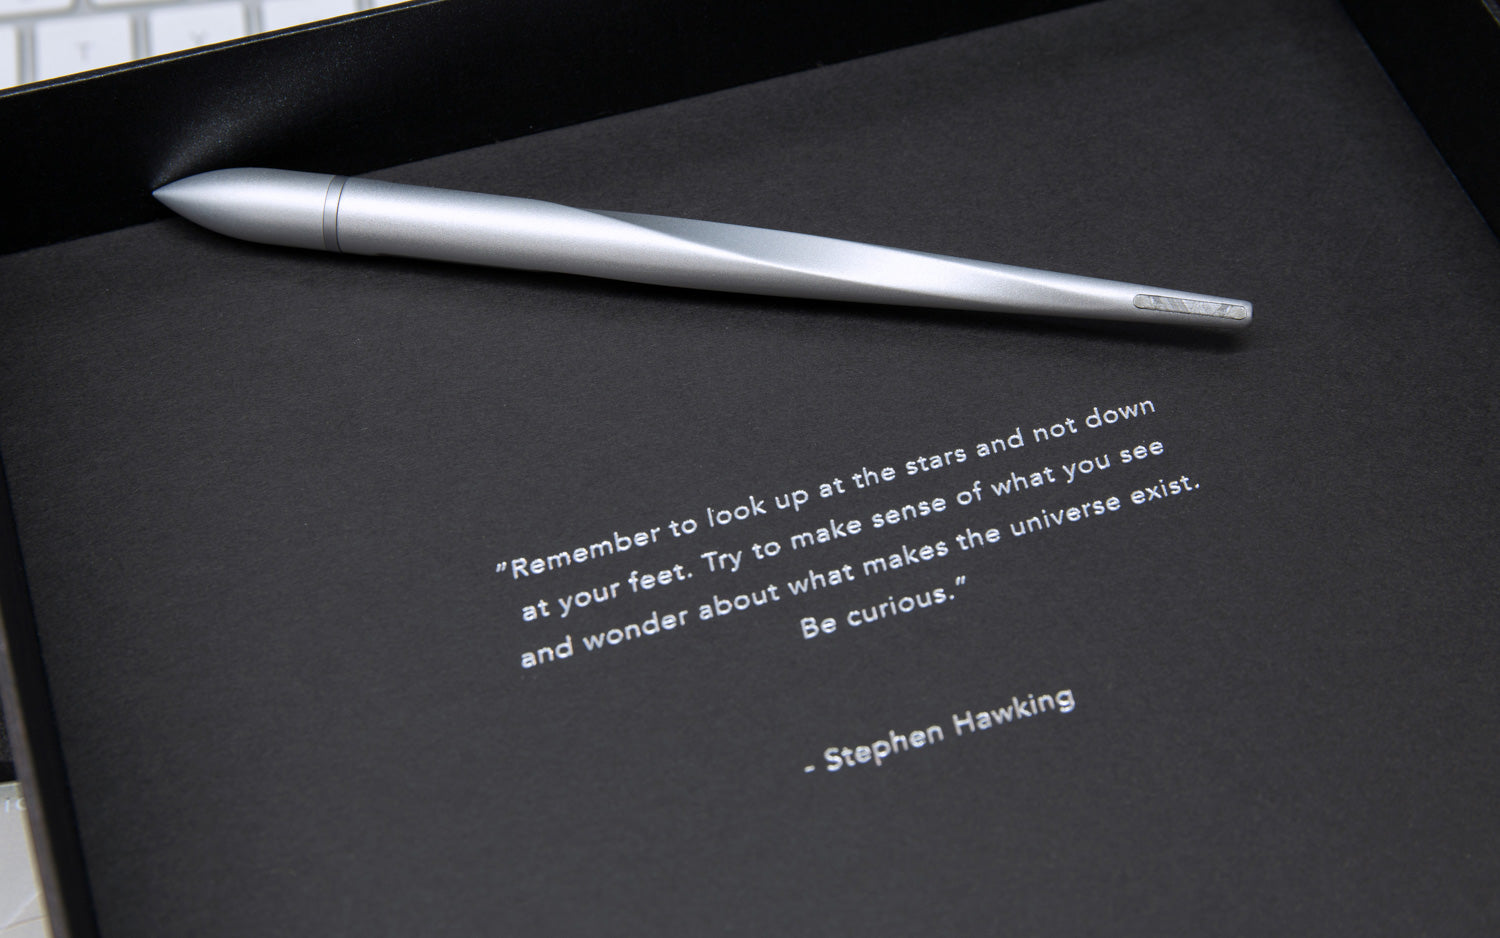 "Remember to look up at the stars and not down
at your feet. Try to make sense of what you see
and wonder about what makes the universe exist.
Be curious."
- Stephen Hawking